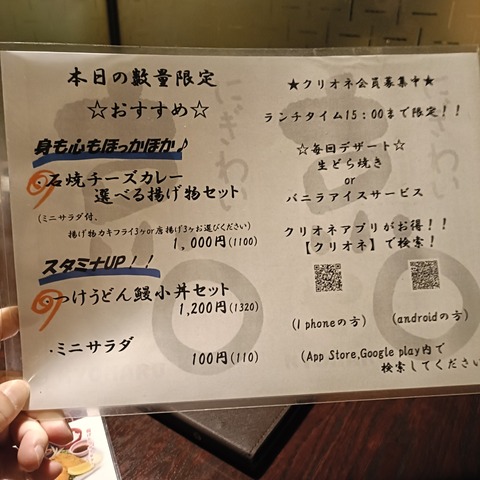 本日の数量限定
☆おすすめ☆
身も心もぽっかぽか♪
・石焼チーズカレー
選べる揚げ物セット
(ミニサラダ付、
揚げ物カキフライ3ヶor店揚げ3ヶお選びください)
1,000円(1100)
スタミナUP！！
・つけうどん鰻小丼セット
1,200円(1320)
・ミニサラダ 100円(110)
★クリオネ会員募集中★
ランチタイム15：00まで限定！！
☆毎回デザート☆
生どら焼き
or
バニラアイスサービス
クリオネアプリがお得！！
【クリオネ】で検索！
(I phoneの方)
(androidの方)
(App Store,Google play内で
検索してください